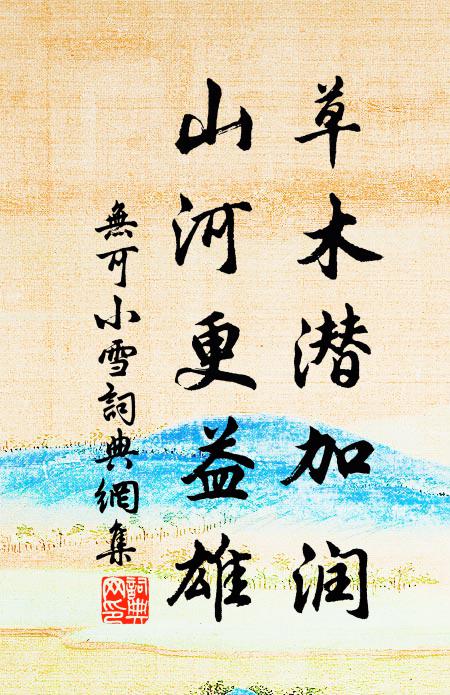 草木潜加润
山河更益雄
無可小雪詞典網集